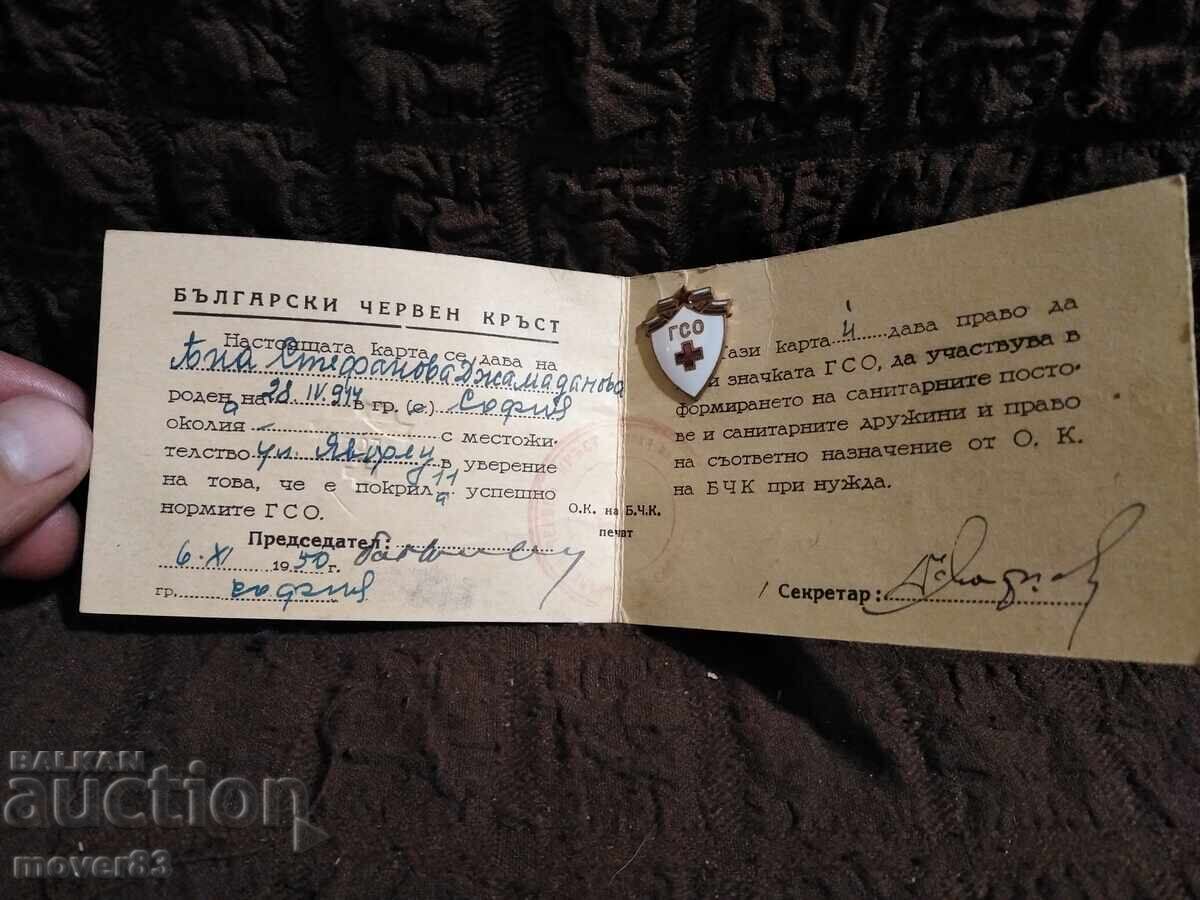 БЪЛГАРСКИ ЧЕРВЕН КРЪСТ
Настоящата карта се дава на
Ана Стефанова Джамаданова
роден а на 28 IV 914 в гр. (с) София
околия - с местожи-
телство ул. Яворец 11 в уверение
на това, че е покрил а успешно
нормите ГСО.
Председател:
6. XI 1950 г.
гр. София
О.К. на Б.Ч.К.
печат
ГСО
Тази карта й дава право да
и значката ГСО, да участвува в
формирането на санитарните посто-
ве и санитарните дружини и право
на съответно назначение от О. К.
на БЧК при нужда.
/ Секретар:
BALKAN
auction
mover83